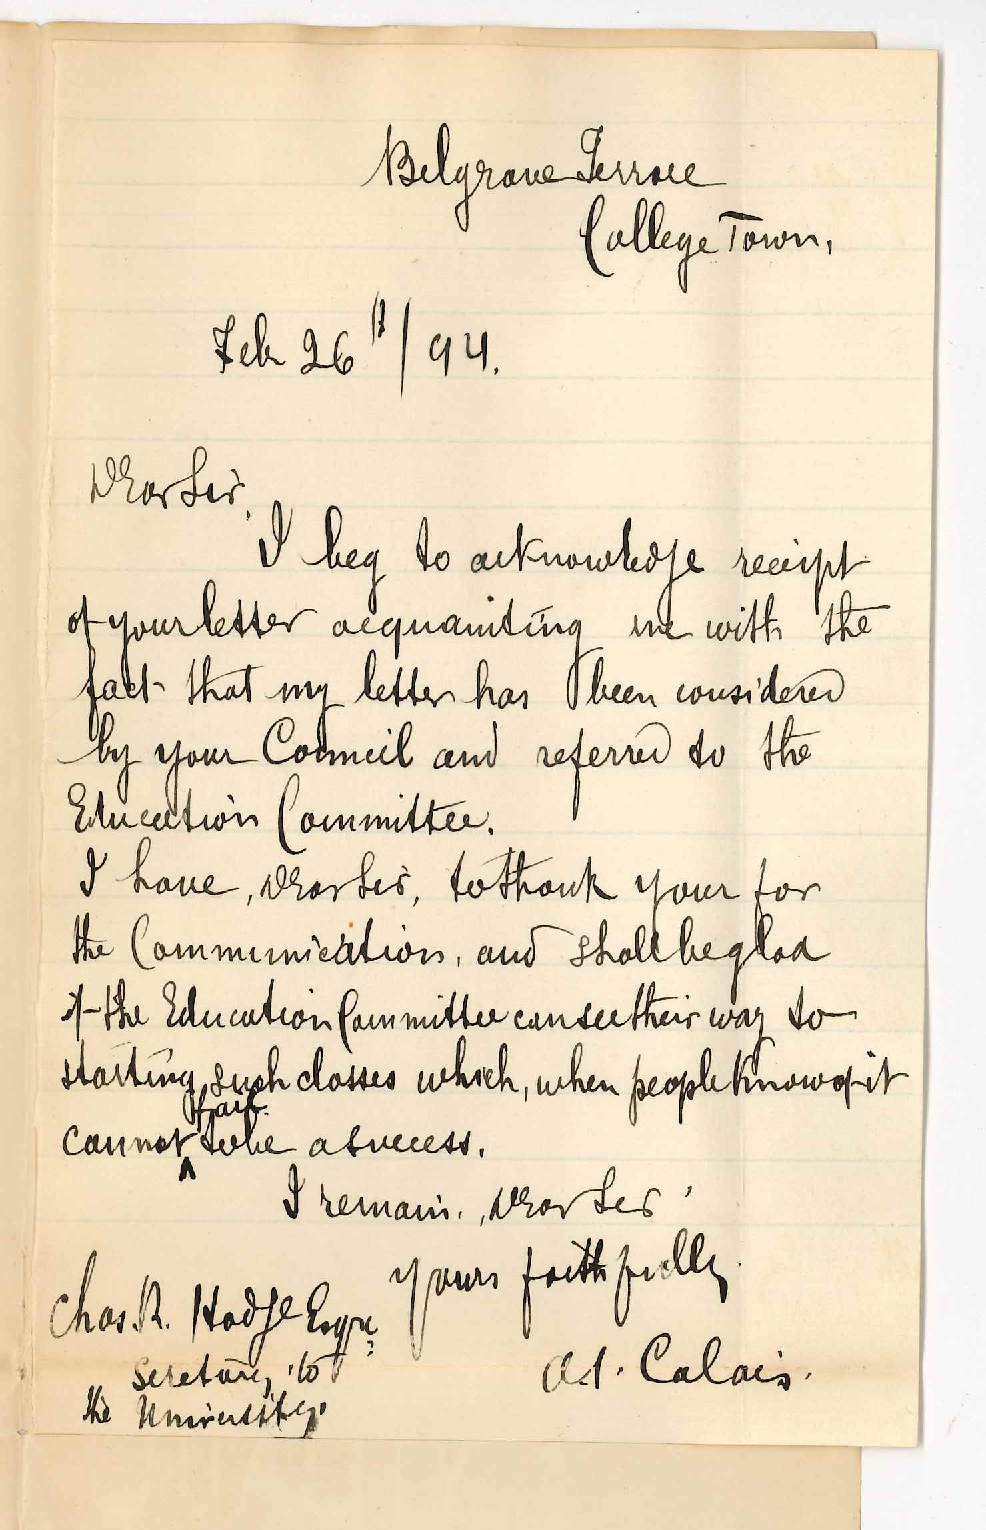 Belgrave Terrace
College Town,
Feb 26th/94.
Dear Sir,
I beg to acknowledge receipt
of your letter acquainting me with the
fact that my letter has been considered
by your Council and referred to the
Education Committee.
I have, Dear Sir, to thank your for
the Communication, and shall be glad
if the Education Committee can see their way to
starting such classes which, when people know of it
cannot fail to be a success.
I remain, Dear Sir,
yours faithfully
Chas. R. Hodge Esqre,
Secretary to
the University.
Calais.